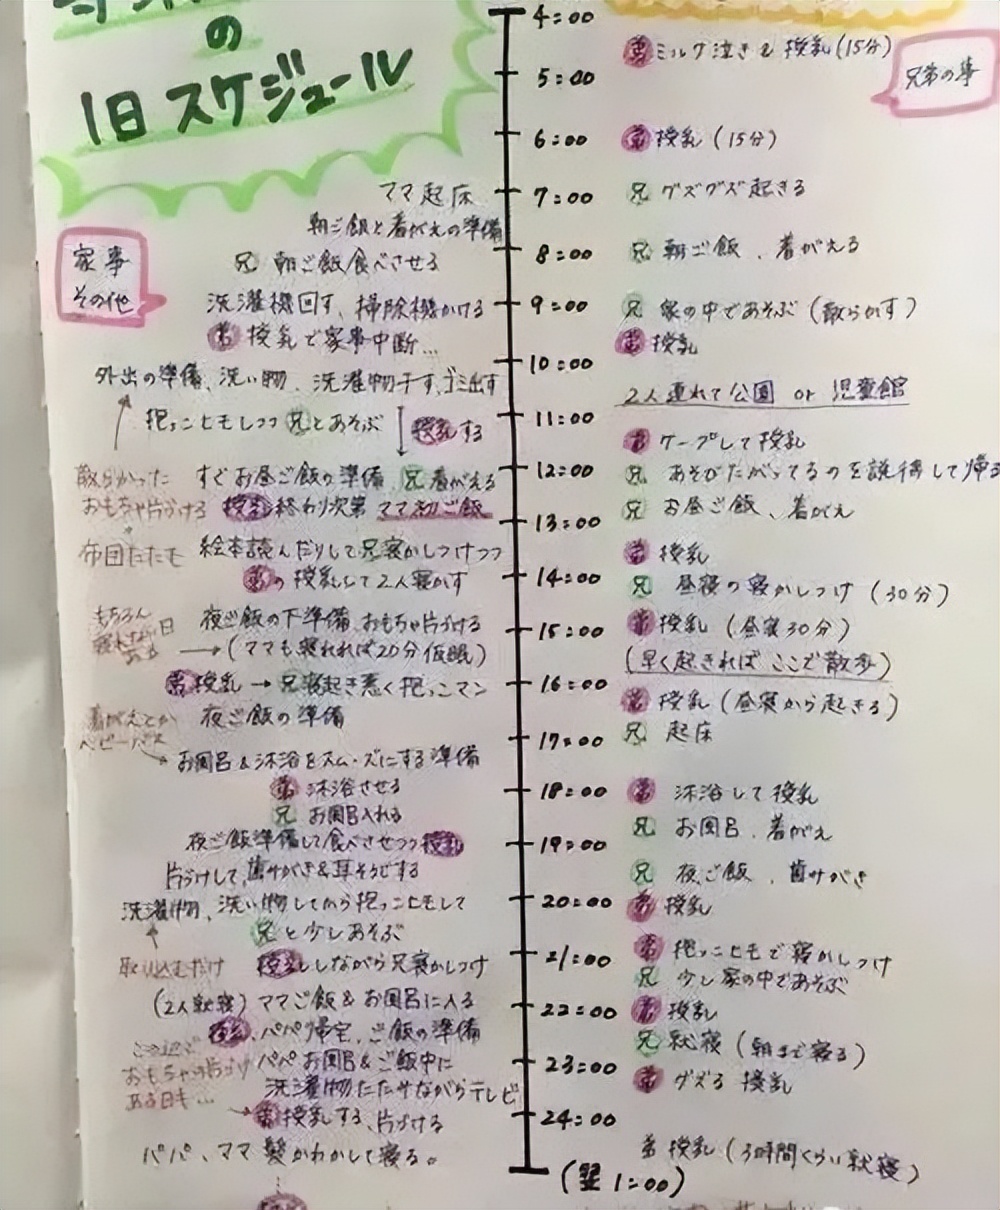 の
1日スケジュール
家事
その他
兄弟の事
4:00
弟 ミルク泣き&授乳(15分)
5:00
6:00
弟 授乳(15分)
ママ起床
7:00
兄 グズグズ起きる
朝ご飯と着がえの準備
8:00
兄 朝ご飯、着がえる
兄 朝ご飯食べさせる
洗濯機回す、掃除機かける
9:00
兄 家の中であそぶ(散らかす)
弟 授乳で家事中断…
弟 授乳
10:00
外出の準備、洗い物、洗濯物干す、ゴミ出す
2人連れて公園 or 児童館
抱っこヒモしつつ兄とあそぶ
授乳する
11:00
弟 ケープして授乳
散らかった
おもちゃ片づける
すぐお昼ご飯の準備、兄着がえる
12:00
兄 あそびたがってるのを説得して帰る
授乳終わり次第 ママ初ご飯
兄 お昼ご飯、着がえ
13:00
布団たたむ
絵本読んだりして兄寝かしつけつつ
弟 授乳
弟の授乳して2人寝かす
14:00
兄 昼寝の寝かしつけ(30分)
もちろん
日
夜ご飯の下準備、おもちゃ片づける
15:00
弟 授乳(昼寝30分)
→(ママも寝れれば20分仮眠)
(早く起きればここで散歩)
弟授乳→兄寝起き悪く抱っこマン
16:00
弟 授乳(昼寝から起きる)
着がえとか
ベビーバス
夜ご飯の準備
17:00
兄 起床
お風呂&沐浴をスムーズにする準備
弟 沐浴させる
18:00
弟 沐浴して授乳
兄 お風呂入れる
兄 お風呂、着がえ
夜ご飯準備して食べさせつつ授乳
19:00
片づけして、歯みがき&耳そうじする
兄 夜ご飯、歯みがき
洗濯物、洗い物してから抱っこヒモして
20:00
弟 授乳
兄と少しあそぶ
取り込むだけ
授乳しながら兄寝かしつけ
21:00
弟 抱っこヒモで寝かしつけ
兄 少し家の中であそぶ
(2人就寝)ママご飯&お風呂に入る
22:00
弟 授乳
授乳、パパ帰宅、ご飯の準備
兄 就寝(朝まで寝る)
おもちゃ片づけ
ある日も…
パパお風呂&ご飯中に
23:00
弟 グズる 授乳
洗濯物たたみながらテレビ
弟授乳する、片づける
24:00
パパ、ママ 髪かわかして寝る。
弟 授乳(3時間くらい就寝)
(翌1:00)